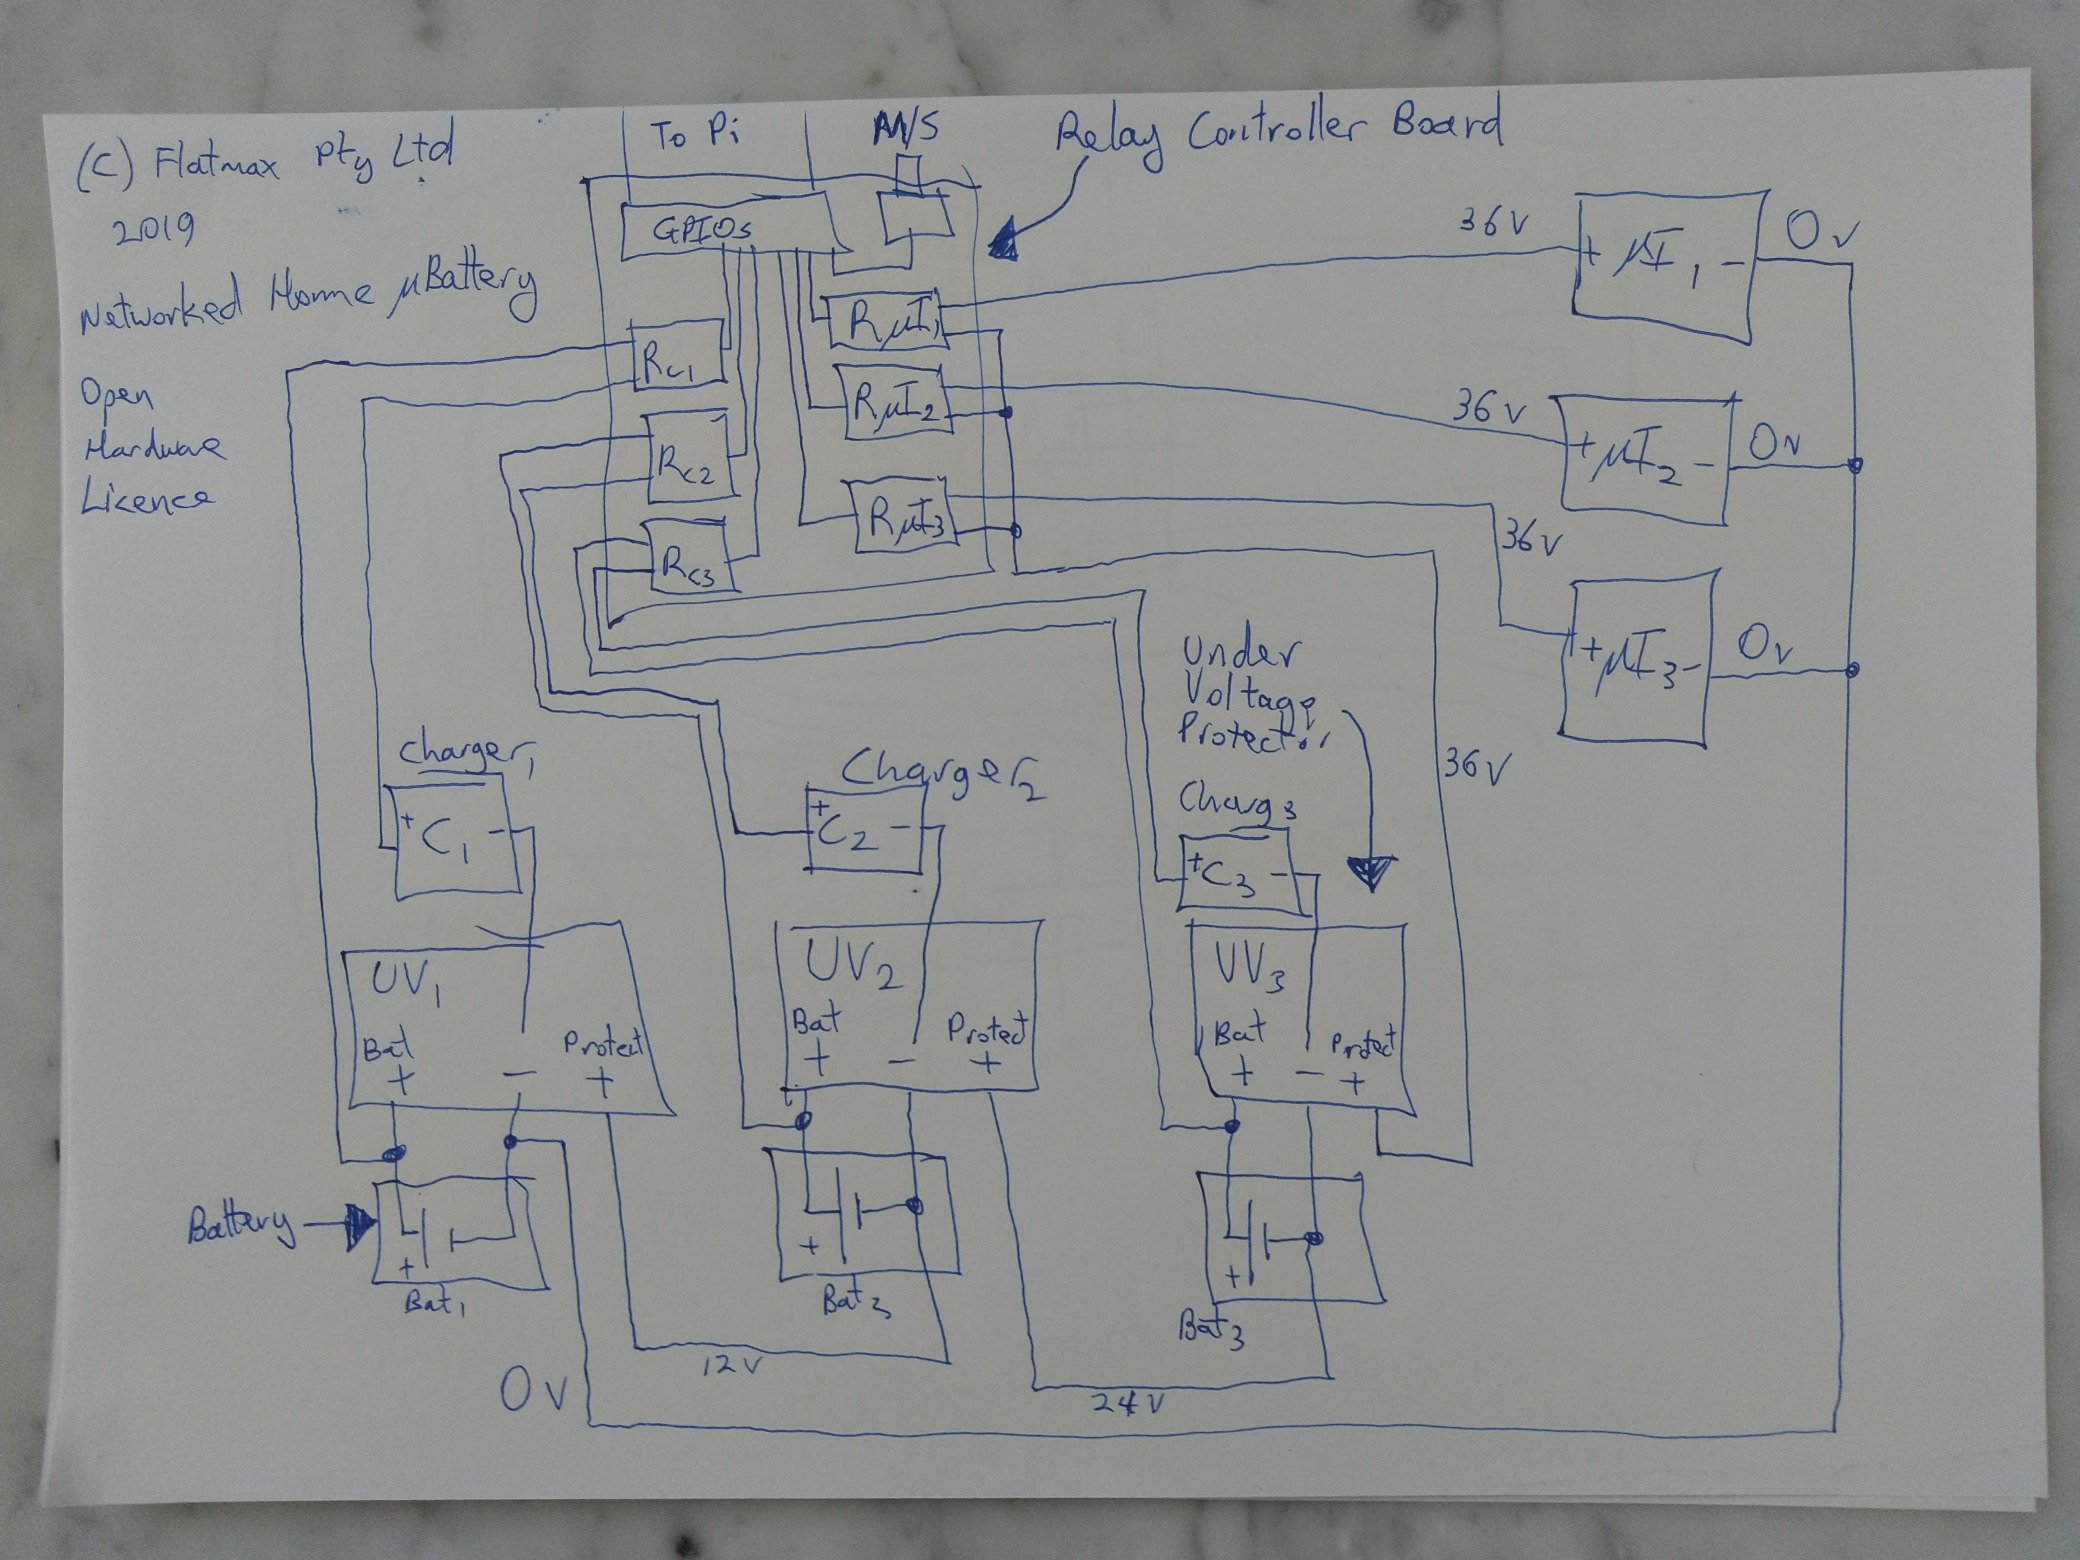 (C) Flatmax Pty Ltd
2019
Networked Home μBattery
Open
Hardware
Licence
To Pi
M/S
Relay Controller Board
GPIOs
RC1
RC2
RC3
RμI1
RμI2
RμI3
36V
+ μI1 -
0v
36V
+ μI2 -
0v
36V
+ μI3 -
0v
Under
Voltage
Protector
36V
Charger1
+ C1 -
Charger2
+ C2 -
Charg3
+ C3 -
UV1
Bat
+
-
Protect
+
UV2
Bat
+
-
Protect
+
UV3
Bat
+
-
Protect
+
Battery
+
Bat1
+
+
Bat3
12V
24V
0V